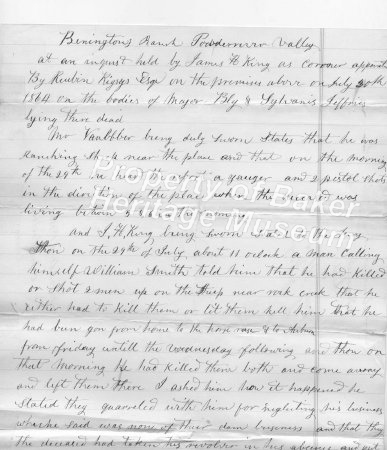 Benington's Ranch Powder river Valley
at an inquest held by James H King as coroner appoint
By Reubin Esqr on the premises above on July 30th
1864 on the bodies of Major Bly & Sylvanis Jeffries
lying there dead
Mr being duly sworn states that he was
ranching stock near the place and that on the morning
of the 29th he heard a shot a yauger and 2 pistol shots
in the direction of the place where the diceased was
living between 5 & 6 in the morning
and J, H, King being sworn states that they
thon on the 29th of July about 11 oclock a man calling
himself William Smith told him that he had killed
or shot 2 men up on the near rock creek that he
either had to kill them or let them kill him that he
had bin gon from home to the horse race & to Auburn
from friday untill the wednesday following and thon on
that morning he had killed them both and come away
and left them there I asked him how it happened he
stated they quareled with him for neglicting his business
which he said was none of their dam business and that they
the deceased had taken his revolver in his absence and
Property of Baker
Heritage Museum